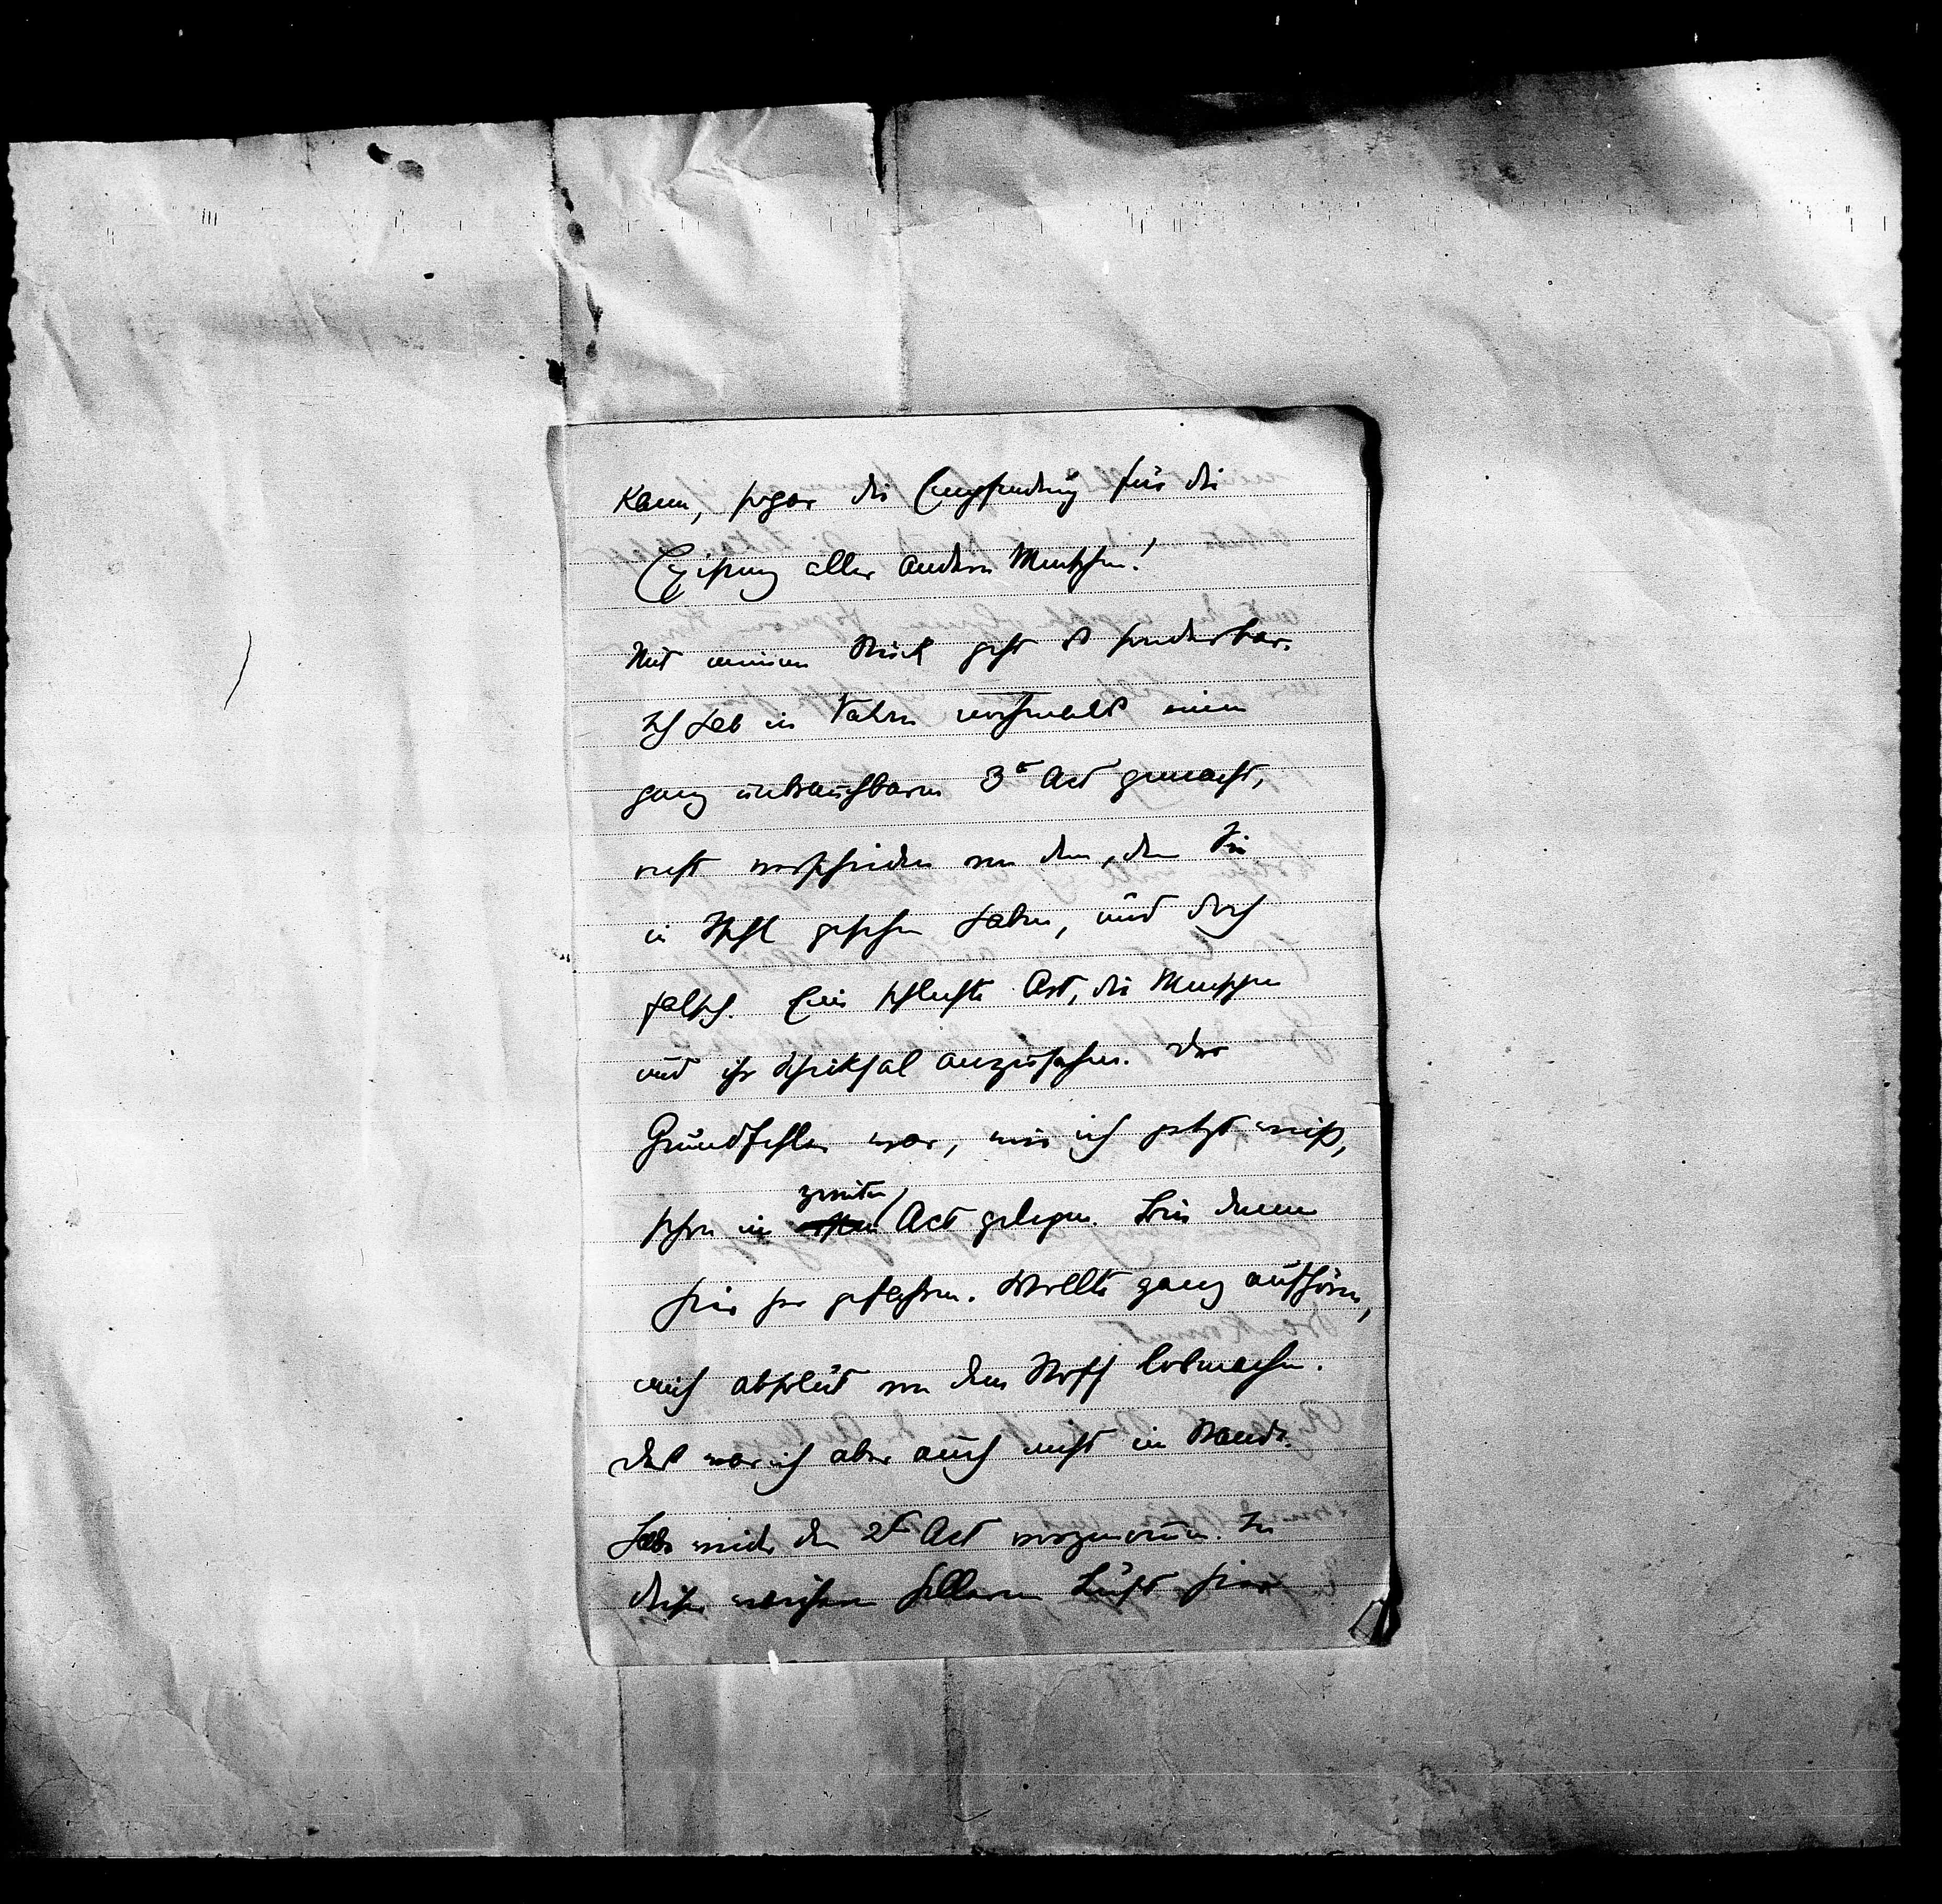 kann, sogar die Empfindung für die
Existenz aller andern Menschen!
Mit meinem Stück geht es sonderbar.
Ich hab in Vahrn einen
ganz unbrauchbaren 3n Act gemacht,
recht verschieden von dem, den Sie
in Ischl gesehen haben, und doch
falsch. Eine schlechte Art, die Menschen
und ihr Schicksal anzusehen. Der
Grundfehler war, wie ich jetzt weiß,
schon im zweiten Act gelegen. Bin dann
hier so gesessen. Wollte ganz aufhören,
mich absolut von dem Stoff losmachen.
Das war ich aber auch nicht im Stande.
Habe mich den 2n Act vorgenommen. In
dieser weichen helleren Luft hier